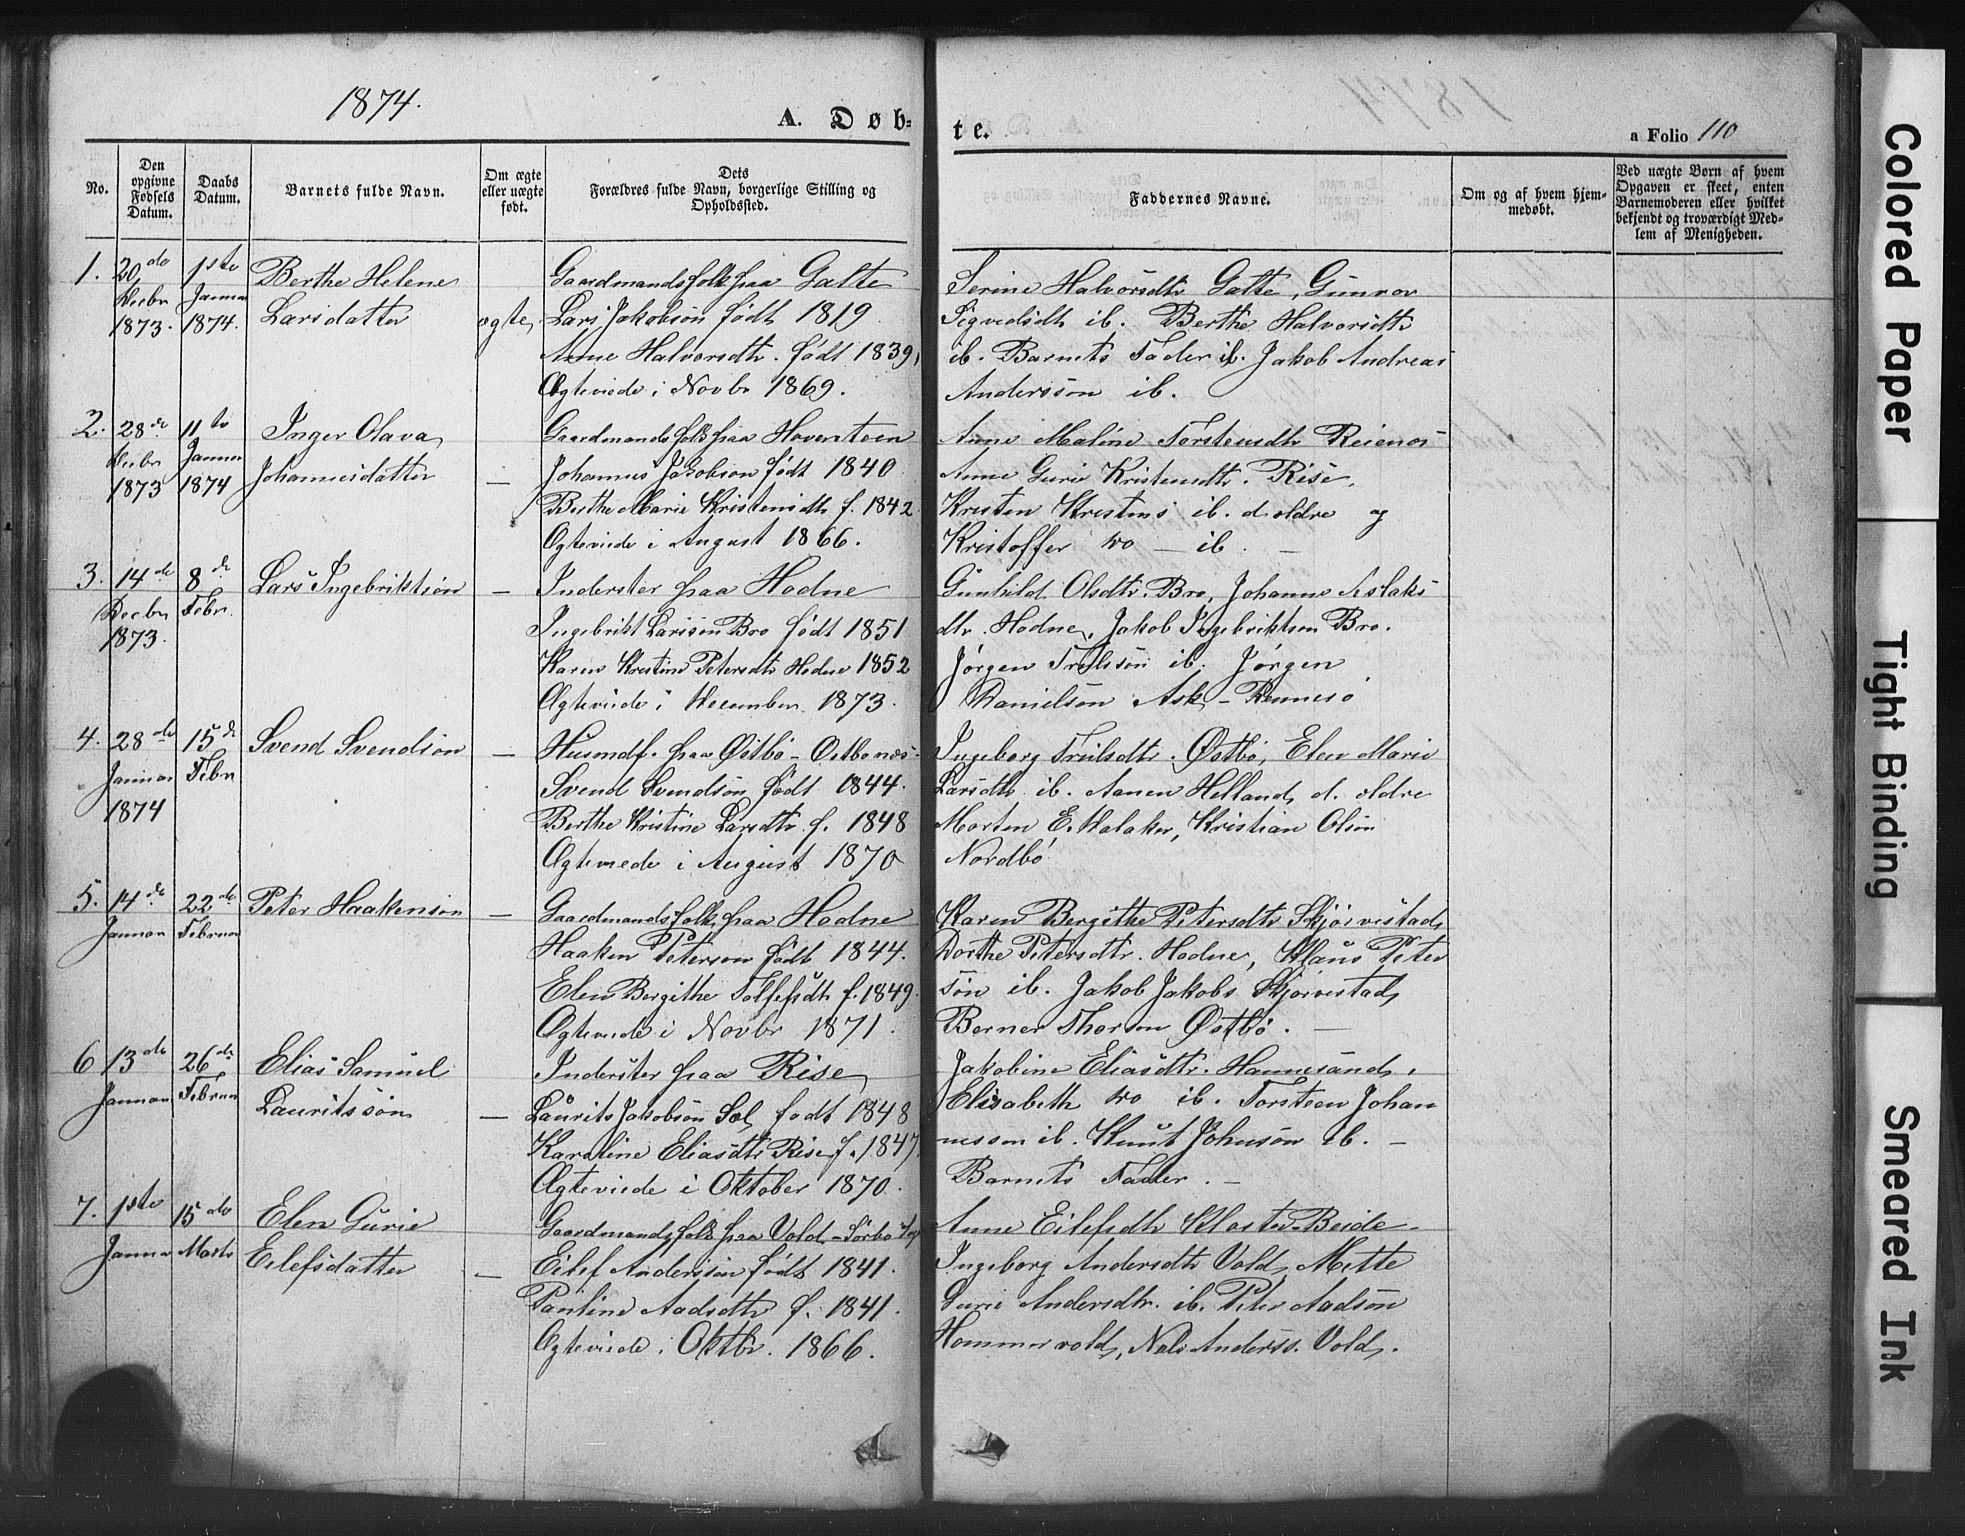 1874.
A. Døb=
te.
a Folio 110
No.
Den opgivne Fødsels Datum.
Daabs Datum.
Barnets fulde Navn.
Om ægte eller uægte født.
Dets Forældres fulde Navn, borgerlige Stilling og Opholdssted.
Faddernes Navne.
Om og af hvem hjemmedøbt.
Ved uægte Børn af hvem Opgaven er skeet, enten Barnemoderen eller hvilket bekjendt og troværdigt Medlem af Menigheden.
1. 20de 1ste Berthe Helene Gaardmandsfolk fra Galte
Decbr Januar
1873. 1874. Larsdatter ægte Lars Jakobsøn født 1819
Anne Halvorsdtr. født 1839,
Ægteviede i Novbr 1869.
Serine Halvorsdtr Galte, Gunvor
Sigvedsdtr ib. Berthe Halvorsdtr
ib. Barnets Fader ib. Jakob Andreas
Anderssøn ib.
2. 28de 11te Inger Olava Gaardmandsfolk fra Hovensteen
Decbr Januar
1873 1874 Johannesdatter — Johannes Jakobsøn født 1840
Berthe Marie Kristensdtr f. 1842
Ægteviede i August 1866.
Anne Maline Torstensdtr
Anne Gurie Kristensdtr. Rise.
Kristen Kristens ib. d. oldre og
Kristoffer do — ib. —
3. 14de 8de Lars Ingebriktsøn — Inderster fraa Hodne
Decbr Febr.
1873. Ingebrikt Larssøn Bro født 1851
Karen Kristine Petersdtr Hodne 1852
Ægteviede i December 1873.
Gunhild Olsdtr. Bro, Johanne Aslaks
dtr. Hodne, Jakob Ingebriktsen Bro.
Jørgen Trulssøn ib. Jørgen
Danielsøn Ask - Rennesø
4. 28de 15de Svend Svendsøn — Husmdf. fraa Østbø - Ostbønæs
Januar Febr
1874 Svend Svendsøn født 1844.
Berthe Kristine Larsdtr. f. 1848
Ægteviede i August 1870
Ingeborg Trulsdtr. Østbø, Elen Marie
Larsdtr ib. Aanen Helland d. oldre
Morten E. Walaker, Kristian Olsøn
Nordbø
5. 14de 22de Peter Haakensøn — Gaardmandsfolk fraa Hodne
Januar Februar
Haaken Peterson født 1844.
Elen Bergithe Tollefsdtr f. 1849.
Ægteviede i Novbr 1871.
Karen Bergithe Petersdtr Skjørvestad
Dorthe Petersdtr. Hodne, Klaus Peter
søn ib. Jakob Jakobs Skjørvestad
Berner Thorsøn Østbø. —
6 13de 26de Elias Samuel Inderster fraa Rise
Januar Februar
Lauritssøn — Laurits Jakobsøn Sel født 1848
Karoline Eliasdtr Rise f. 1847.
Ægteviede i Oktober 1870.
Jakobine Eliasdtr. Hannesand.
Elisabeth do ib. Torsteen Johan
nessøn ib. Knut Johnsøn ib. —
Barnets Fader. —
7. 1ste 15de Elen Gurie Gaardmandsfolk fraa Vold - Sørbø
Januar Marts
Eilefsdatter — Eilef Anderssøn født 1841.
Pauline Aadsdtr f. 1841.
Ægteviede i Oktbr. 1866.
Anne Eilefsdtr Kloster-Beide
Ingeborg Andersdtr Vold, Mette
Gurie Andersdtr. ib. Peter Aadsøn
Hommervold, Nils Anderss. Vold.
Colored Paper
Tight Binding
Smeared Ink